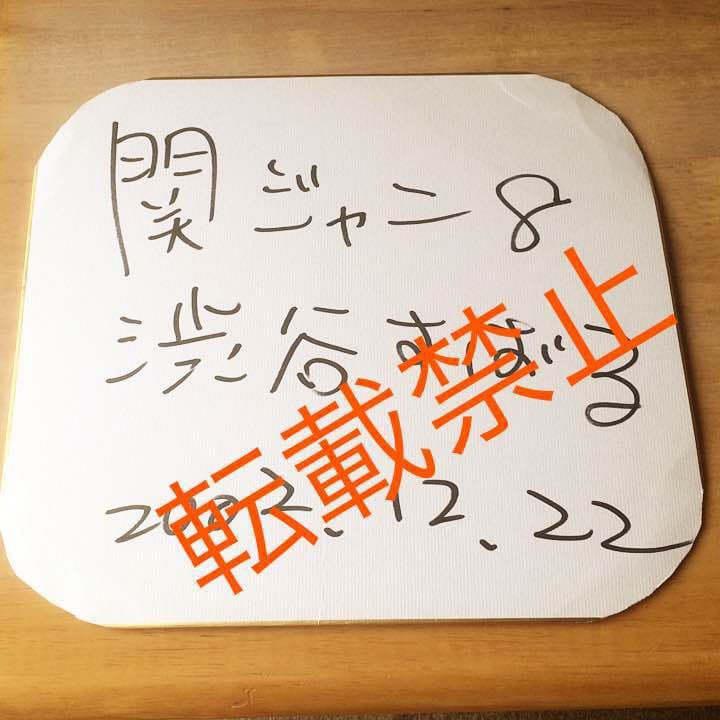 関ジャニ8
渋谷すばる
2002.12.22
転載禁止